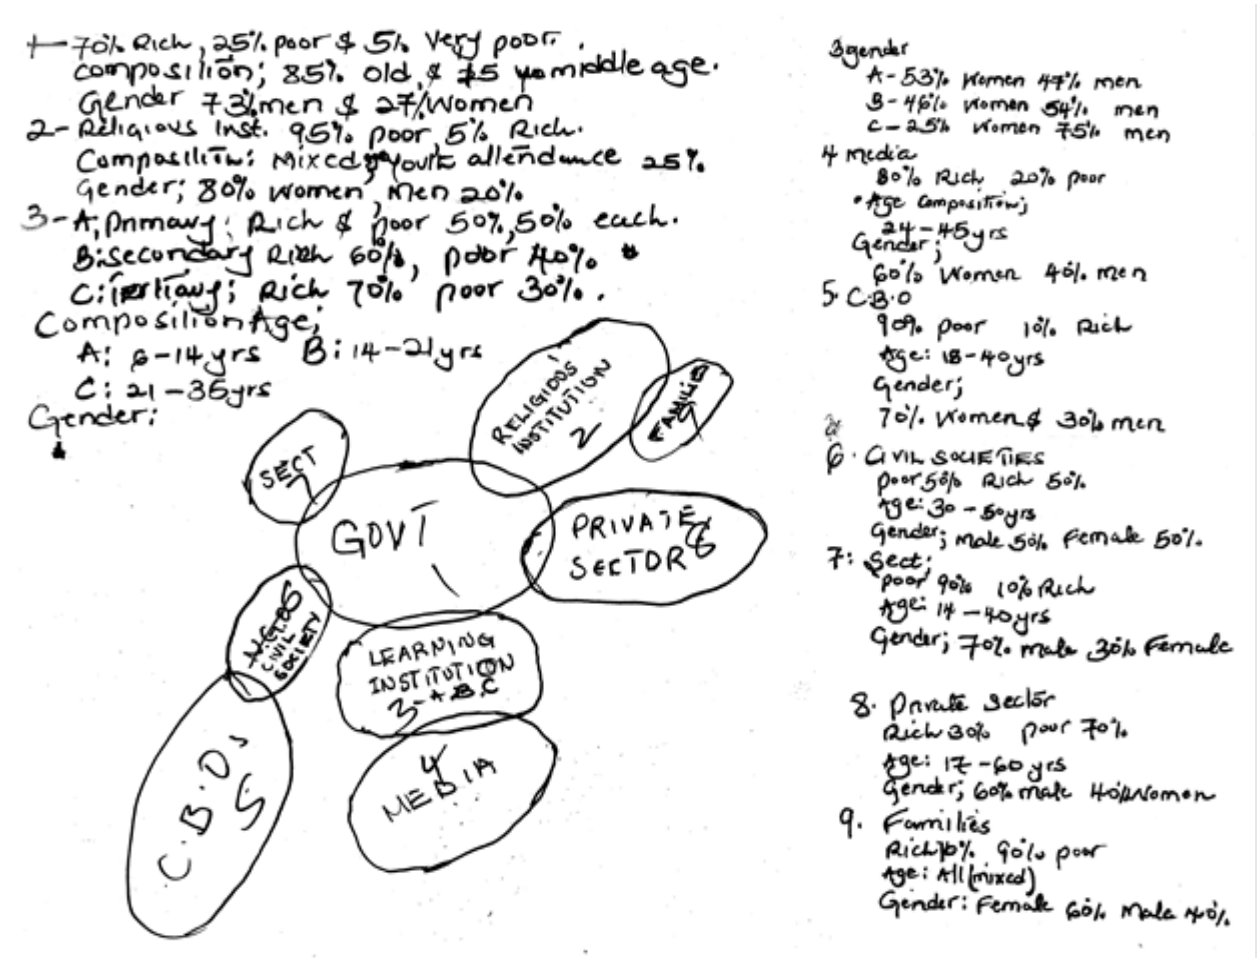 1- 70% Rich, 25% poor & 5% very poor.
composition; 85% old, & 15 yo middle age.
Gender 73% men & 27% women
2- Religious Inst. 95% poor, 5% Rich.
Composition: Mixed youth attendance 25%
Gender; 80% women, men 20%
3- A; primary: Rich & poor 50%, 50% each.
B: secondary Rich 60%, poor 40%
C: Tertiary; Rich 70% poor 30%.
Composition Age;
A: 6-14 yrs B: 14-21 yrs
C: 21-35 yrs
Gender:
SECT
7
GOVT
1
RELIGIOUS
INSTITUTION
2
FAMILIES
9
PRIVATE
SECTOR 8
N.G.OS 6
CIVIL
SOCIETY
LEARNING
INSTITUTION
3- A.B.C
4
MEDIA
C.B.Os
5
3 gender
A- 53% women 47% men
B- 46% women 54% men
C- 25% women 75% men
4 media
80% Rich 20% poor
• Age composition;
24-45 yrs
Gender;
60% women 40% men
5. C.B.O
90% poor 10% Rich
Age: 18-40 yrs
Gender;
70% women & 30% men
6. CIVIL SOCIETIES
poor 50% Rich 50%
Age: 30-50 yrs
Gender; male 50% Female 50%.
7: Sect;
poor 90% 10% Rich
Age: 14-40 yrs
Gender; 70% male 30% Female
8. Private Sector
Rich 30% poor 70%
Age: 17-60 yrs
Gender; 60% male 40% women
9. Families
Rich 10% 90% poor
Age: All (mixed)
Gender: Female 60% male 40%